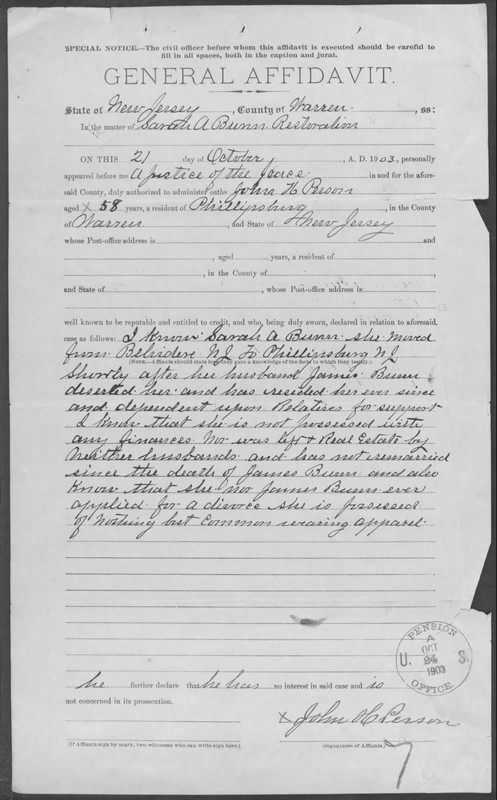 SPECIAL NOTICE.—The civil officer before whom this affidavit is executed should be careful to
fill in all spaces, both in the caption and jurat.
GENERAL AFFIDAVIT.
State of New Jersey, County of Warren, ss:
In the matter of Sarah A Bunn Restoration
ON THIS 21 day of October, A. D. 1903, personally
appeared before me a justice of the peace in and for the afore-
said County, duly authorized to administer oaths John H Person
aged 58 years, a resident of Phillipsburg, in the County
of Warren, and State of New Jersey
whose Post-office address is and
, aged years, a resident of
, in the County of ,
and State of , whose Post-office address is
well known to be reputable and entitled to credit, and who, being duly sworn, declared in relation to aforesaid,
case as follows: I know Sarah A Bunn she moved
from Belvidere N.J. to Phillipsburg N J
(NOTE.—Affiants should state how they gain a knowledge of the facts to which they testify.)
Shortly after her husband James Bunn
deserted her and has resided her ever since
and dependent upon Relatives for support
I know that she is not possessed with
any finances Nor was left Real Estate by
Neither husbands and has not remarried
since the death of James Bunn and also
Know that she nor James Bunn ever
applied for a divorce she is possessed
of Nothing but Common wearing apparel.
he further declare that he has no interest in said case and is
not concerned in its prosecution.
x John H Person
(If Affiants sign by mark, two witnesses who can write sign here.) (Signatures of Affiants.)
7
U. S. PENSION OFFICE.
A
OCT
24
1903